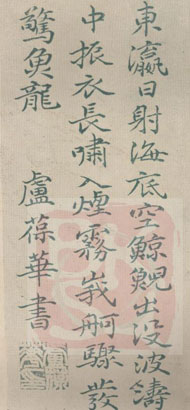 東瀛日射海底空鯨鯢出没波濤
中振衣長嘯入煙霧峩舸驟發
驚魚龍 盧葆華書